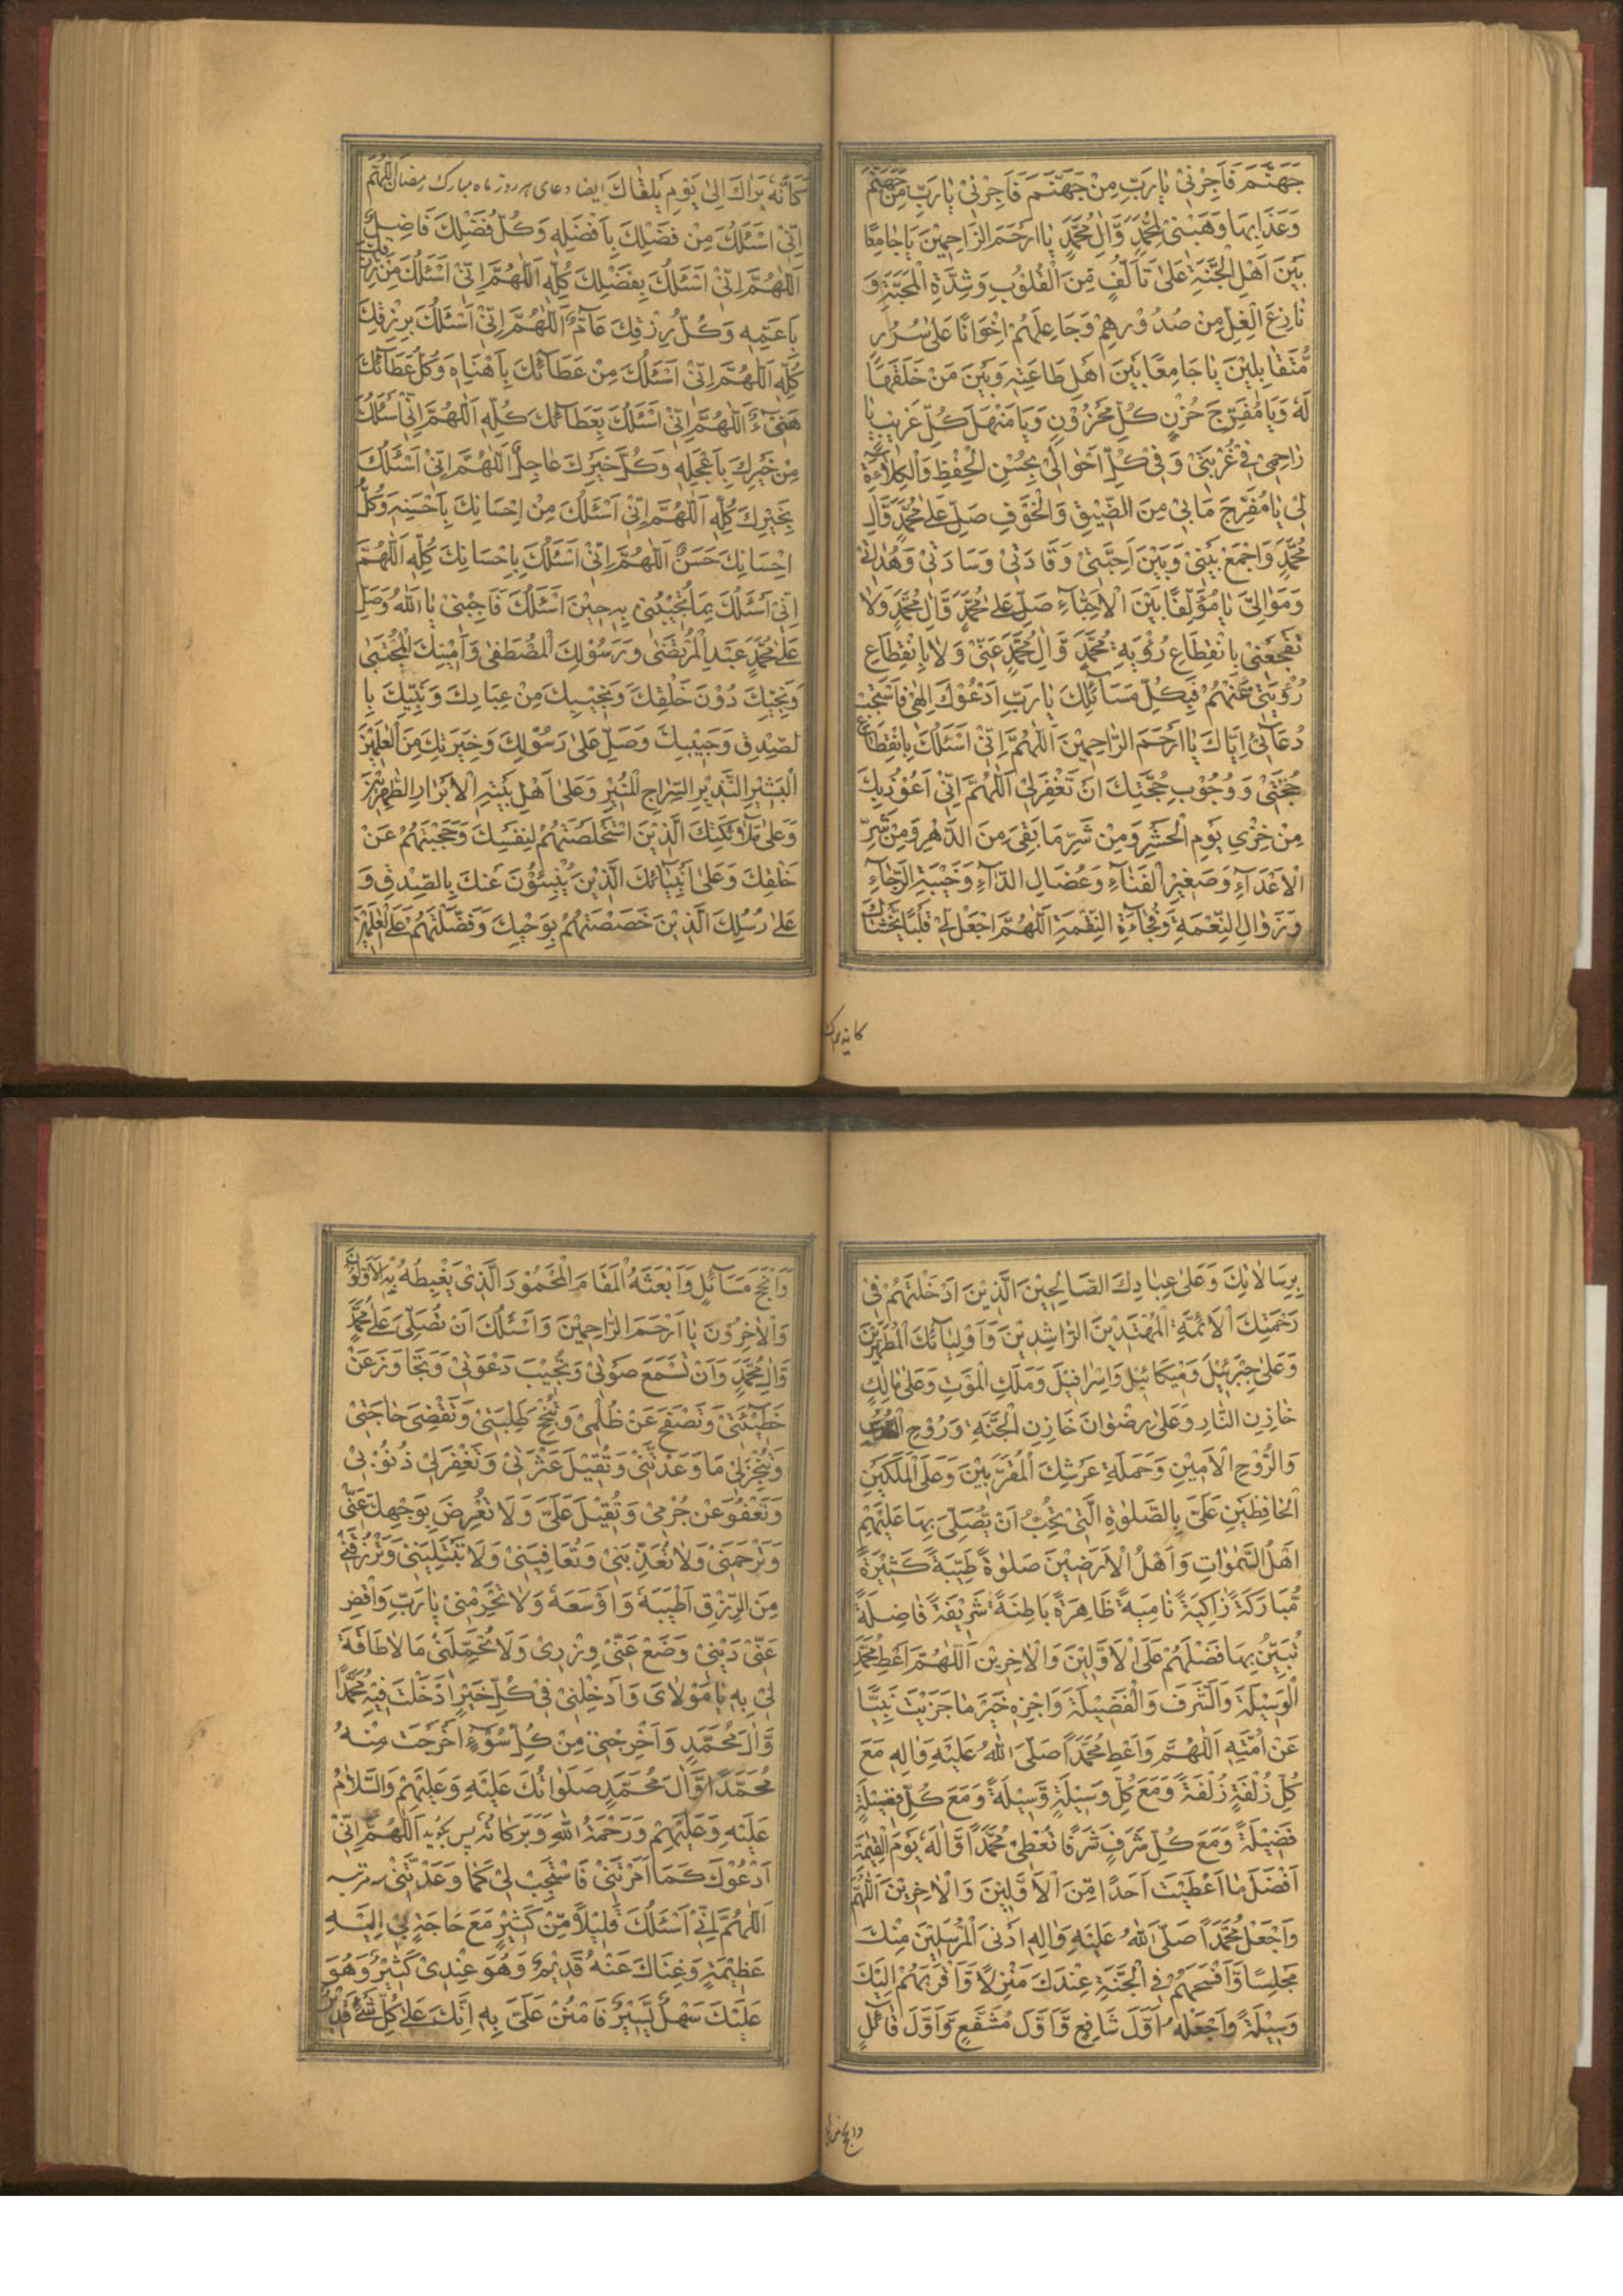 جَهَنَّمَ فَاَجِرْنِيْ يٰا رَبِّ مِنْ جَهَنَّمَ فَاَجِرْنِيْ يٰا رَبِّ مِنْ جَهَنَّمَ
وَعَذَابِهَا وَهَبْنِيْ لِمُحَمَّدٍ وَّاٰلِ مُحَمَّدٍ يٰا اَرْحَمَ الرّٰاحِمِيْنَ يٰا جٰامِعًا
بَيْنَ اَهْلِ الْجَنَّةِ عَلٰى تَاَلُّفٍ مِّنَ الْقُلُوْبِ وَشِدَّةِ الْمَحَبَّةِ وَ
نٰازِعَ الْغِلِّ مِنْ صُدُوْرِهِمْ وَجَاعِلَهُمْ اِخْوَانًا عَلٰى سُرُرٍ
مُّتَقٰابِلِيْنَ يٰا جَامِعًا بَيْنَ اَهْلِ طَاعَتِهٖ وَبَيْنَ مَنْ خَلَقَهَا
لَهٗ وَيٰا مُفَرِّجَ حُزْنِ كُلِّ مَحْزُوْنٍ وَيٰا مَنْهَلَ كُلِّ غَرِيْبٍ يٰا
رٰاحِمِيْ فِيْ غُرْبَتِيْ وَفِيْ كُلِّ اَحْوٰالِيْ بِحُسْنِ الْحِفْظِ وَالْكِلٰاءَةِ
لِيْ يٰا مُفَرِّجَ مَا بِيْ مِنَ الضِّيْقِ وَالْخَوْفِ صَلِّ عَلٰى مُحَمَّدٍ وَّاٰلِ
مُحَمَّدٍ وَاجْمَعْ بَيْنِيْ وَبَيْنَ اَحِبَّتِيْ وَقَادَتِيْ وَسَادَتِيْ وَهُدٰاتِيْ
وَمَوٰالِيَّ يٰا مُؤَلِّفًا بَيْنَ الْاَحِبَّآءِ صَلِّ عَلٰى مُحَمَّدٍ وَّاٰلِ مُحَمَّدٍ وَلٰا
تَفْجَعْنِيْ بِانْقِطَاعِ رُؤْيَةِ مُحَمَّدٍ وَّاٰلِ مُحَمَّدٍ عَنِّيْ وَلٰا بِانْقِطَاعِ
رُؤْيَتِيْ عَنْهُمْ فَبِكُلِّ مَسَآئِلِكَ يٰا رَبِّ اَدْعُوْكَ اِلٰهِيْ فَاسْتَجِبْ
دُعَآئِيْ اِيَّاكَ يٰا اَرْحَمَ الرّٰاحِمِيْنَ اَللّٰهُمَّ اِنِّيْ اَسْئَلُكَ بِانْقِطَاعِ
حُجَّتِيْ وَوُجُوْبِ حُجَّتِكَ اَنْ تَغْفِرَ لِيْ اَللّٰهُمَّ اِنِّيْ اَعُوْذُ بِكَ
مِنْ خِزْيِ يَوْمِ الْحَشْرِ وَمِنْ شَرِّ مَا بَقِيَ مِنَ الدَّهْرِ وَمِنْ شَرِّ
الْاَعْدَآءِ وَصَغِيْرِ الْفَنَآءِ وَعُضَالِ الدَّآءِ وَخَيْبَةِ الرَّجٰآءِ
وَزَوٰالِ النِّعْمَةِ وَفُجَاءَةِ النِّقْمَةِ اَللّٰهُمَّ اجْعَلْ لِيْ قَلْبًا يَخْشٰاكَ
كَاَنَّهٗ يَرَاكَ اِلٰى يَوْمِ يَلْقٰاكَ ايضا دعای هر روز ماه مبارک رمضان اَللّٰهُمَّ
اِنِّيْ اَسْئَلُكَ مِنْ فَضْلِكَ بِاَفْضَلِهٖ وَكُلُّ فَضْلِكَ فَاضِلٌ
اَللّٰهُمَّ اِنِّيْ اَسْئَلُكَ بِفَضْلِكَ كُلِّهٖ اَللّٰهُمَّ اِنِّيْ اَسْئَلُكَ مِنْ رِزْقِكَ
بِاَعَمِّهٖ وَكُلُّ رِزْقِكَ عَآمٌّ اَللّٰهُمَّ اِنِّيْ اَسْئَلُكَ بِرِزْقِكَ
كُلِّهٖ اَللّٰهُمَّ اِنِّيْ اَسْئَلُكَ مِنْ عَطَآئِكَ بِاَهْنَاِهٖ وَكُلُّ عَطَآئِكَ
هَنِيْئٌ اَللّٰهُمَّ اِنِّيْ اَسْئَلُكَ بِعَطَآئِكَ كُلِّهٖ اَللّٰهُمَّ اِنِّيْ اَسْئَلُكَ
مِنْ خَيْرِكَ بِاَعْجَلِهٖ وَكُلُّ خَيْرِكَ عٰاجِلٌ اَللّٰهُمَّ اِنِّيْ اَسْئَلُكَ
بِخَيْرِكَ كُلِّهٖ اَللّٰهُمَّ اِنِّيْ اَسْئَلُكَ مِنْ اِحْسَانِكَ بِاَحْسَنِهٖ وَكُلُّ
اِحْسَانِكَ حَسَنٌ اَللّٰهُمَّ اِنِّيْ اَسْئَلُكَ بِاِحْسَانِكَ كُلِّهٖ اَللّٰهُمَّ
اِنِّيْ اَسْئَلُكَ بِمَا تُجِيْبُنِيْ بِهٖ حِيْنَ اَسْئَلُكَ فَاَجِبْنِيْ يٰا اَللّٰهُ وَصَلِّ
عَلٰى مُحَمَّدٍ عَبْدِكَ الْمُرْتَضٰى وَرَسُوْلِكَ الْمُصْطَفٰى وَاَمِيْنِكَ الْمُجْتَبٰى
وَنَجِيِّكَ دُوْنَ خَلْقِكَ وَنَجِيْبِكَ مِنْ عِبَادِكَ وَنَبِيِّكَ بِا
لصِّدْقِ وَحَبِيْبِكَ وَصَلِّ عَلٰى رَسُوْلِكَ وَخِيَرَتِكَ مِنَ الْعٰلَمِيْنَ
الْبَشِيْرِ النَّذِيْرِ السِّرَاجِ الْمُنِيْرِ وَعَلٰى اَهْلِ بَيْتِهِ الْاَبْرَارِ الطّٰهِرِيْنَ
وَعَلٰى مَلٰٓئِكَتِكَ الَّذِيْنَ اسْتَخْلَصْتَهُمْ لِنَفْسِكَ وَحَجَبْتَهُمْ عَنْ
خَلْقِكَ وَعَلٰى اَنْبِيَآئِكَ الَّذِيْنَ يُنْبِئُوْنَ عَنْكَ بِالصِّدْقِ وَ
عَلٰى رُسُلِكَ الَّذِيْنَ خَصَصْتَهُمْ بِوَحْيِكَ وَفَضَّلْتَهُمْ عَلَى الْعٰلَمِيْنَ
بِرِسَالَاتِكَ وَعَلٰى عِبٰادِكَ الصَّالِحِيْنَ الَّذِيْنَ اَدْخَلْتَهُمْ فِيْ
رَحْمَتِكَ الْاَئِمَّةِ الْمُهْتَدِيْنَ الرّٰاشِدِيْنَ وَاَوْلِيٰآئِكَ الْمُطَهَّرِيْنَ
وَعَلٰى جِبْرَئِيْلَ وَمِيْكَائِيْلَ وَاِسْرٰافِيْلَ وَمَلَكِ الْمَوْتِ وَعَلٰى مٰالِكٍ
خٰازِنِ النّٰارِ وَعَلٰى رِضْوٰانَ خَازِنِ الْجَنَّةِ وَرُوْحِ الْقُدُسِ
وَالرُّوْحِ الْاَمِيْنِ وَحَمَلَةِ عَرْشِكَ الْمُقَرَّبِيْنَ وَعَلَى الْمَلَكَيْنِ
الْحَافِظَيْنِ عَلَيَّ بِالصَّلٰوةِ الَّتِيْ تُحِبُّ اَنْ يُّصَلِّيَ بِهَا عَلَيْهِمْ
اَهْلُ السَّمٰوَاتِ وَاَهْلُ الْاَرَضِيْنَ صَلٰوةً طَيِّبَةً كَثِيْرَةً
مُّبَارَكَةً زَاكِيَةً نَّامِيَةً ظَاهِرَةً بَاطِنَةً شَرِيْفَةً فَاضِلَةً
تُبَيِّنُ بِهَا فَضْلَهُمْ عَلَى الْاَوَّلِيْنَ وَالْاٰخِرِيْنَ اَللّٰهُمَّ اَعْطِ مُحَمَّدًا
الْوَسِيْلَةَ وَالشَّرَفَ وَالْفَضِيْلَةَ وَاجْزِهٖ خَيْرَ مٰا جَزَيْتَ نَبِيًّا
عَنْ اُمَّتِهٖ اَللّٰهُمَّ وَاَعْطِ مُحَمَّدًا صَلَّى اللّٰهُ عَلَيْهِ وَاٰلِهٖ مَعَ
كُلِّ زُلْفَةٍ زُلْفَةً وَمَعَ كُلِّ وَسِيْلَةٍ وَّسِيْلَةً وَمَعَ كُلِّ فَضِيْلَةٍ
فَضِيْلَةً وَمَعَ كُلِّ شَرَفٍ شَرَفًا تُعْطِيْ مُحَمَّدًا وَّاٰلَهٗ يَوْمَ الْقِيٰمَةِ
اَفْضَلَ مٰا اَعْطَيْتَ اَحَدًا مِّنَ الْاَوَّلِيْنَ وَالْاٰخِرِيْنَ اَللّٰهُمَّ
وَاجْعَلْ مُحَمَّدًا صَلَّى اللّٰهُ عَلَيْهِ وَاٰلِهٖ اَدْنَى الْمُرْسَلِيْنَ مِنْكَ
مَجْلِسًا وَّاَفْسَحَهُمْ فِي الْجَنَّةِ عِنْدَكَ مَنْزِلًا وَّاَقْرَبَهُمْ اِلَيْكَ
وَسِيْلَةً وَاجْعَلْهُ اَوَّلَ شَافِعٍ وَّاَوَّلَ مُشَفَّعٍ وَّاَوَّلَ قَآئِلٍ
وَاَنْجَحَ سَآئِلٍ وَابْعَثْهُ الْمَقَامَ الْمَحْمُوْدَ الَّذِيْ يَغْبِطُهُ بِهِ الْاَوَّلُوْنَ
وَالْاٰخِرُوْنَ يٰا اَرْحَمَ الرّٰاحِمِيْنَ وَاَسْئَلُكَ اَنْ تُصَلِّيَ عَلٰى مُحَمَّدٍ
وَّاٰلِ مُحَمَّدٍ وَاَنْ تَسْمَعَ صَوْتِيْ وَتُجِيْبَ دَعْوَتِيْ وَتَجَاوَزَ عَنْ
خَطِيْئَتِيْ وَتَصْفَحَ عَنْ ظُلْمِيْ وَتُنْجِحَ طَلِبَتِيْ وَتَقْضِيَ حٰاجَتِيْ
وَتُنْجِزَ لِيْ مَا وَعَدْتَّنِيْ وَتُقِيْلَ عَثْرَتِيْ وَتَغْفِرَ لِيْ ذُنُوْبِيْ
وَتَعْفُوَ عَنْ جُرْمِيْ وَتُقْبِلَ عَلَيَّ وَلَا تُعْرِضَ بِوَجْهِكَ عَنِّيْ
وَتَرْحَمَنِيْ وَلَا تُعَذِّبَنِيْ وَتُعَافِيَنِيْ وَلَا تَبْتَلِيَنِيْ وَتَرْزُقَنِيْ
مِنَ الرِّزْقِ اَطْيَبَهٗ وَاَوْسَعَهٗ وَلَا تَحْرِمْنِيْ يٰا رَبِّ وَاقْضِ
عَنِّيْ دَيْنِيْ وَضَعْ عَنِّيْ وِزْرِيْ وَلَا تُحَمِّلْنِيْ مَا لٰا طَاقَةَ
لِيْ بِهٖ يٰا مَوْلٰايَ وَاَدْخِلْنِيْ فِيْ كُلِّ خَيْرٍ اَدْخَلْتَ فِيْهِ مُحَمَّدًا
وَّاٰلَ مُحَمَّدٍ وَاَخْرِجْنِيْ مِنْ كُلِّ سُوْٓءٍ اَخْرَجْتَ مِنْهُ
مُحَمَّدًا وَّاٰلَ مُحَمَّدٍ صَلَوٰاتُكَ عَلَيْهِ وَعَلَيْهِمْ وَالسَّلٰامُ
عَلَيْهِ وَعَلَيْهِمْ وَرَحْمَةُ اللّٰهِ وَبَرَكَاتُهٗ پس بگوید اَللّٰهُمَّ اِنِّيْ
اَدْعُوْكَ كَمَا اَمَرْتَنِيْ فَاسْتَجِبْ لِيْ كَمَا وَعَدْتَّنِيْ سه مرتبه
اَللّٰهُمَّ اِنِّيْ اَسْئَلُكَ قَلِيْلًا مِّنْ كَثِيْرٍ مَعَ حَاجَةٍ بِيْ اِلَيْهِ
عَظِيْمَةٍ وَغِنَاكَ عَنْهُ قَدِيْمٌ وَهُوَ عِنْدِيْ كَثِيْرٌ وَهُوَ
عَلَيْكَ سَهْلٌ يَّسِيْرٌ فَامْنُنْ عَلَيَّ بِهٖ اِنَّكَ عَلٰى كُلِّ شَيْءٍ قَدِيْرٌ